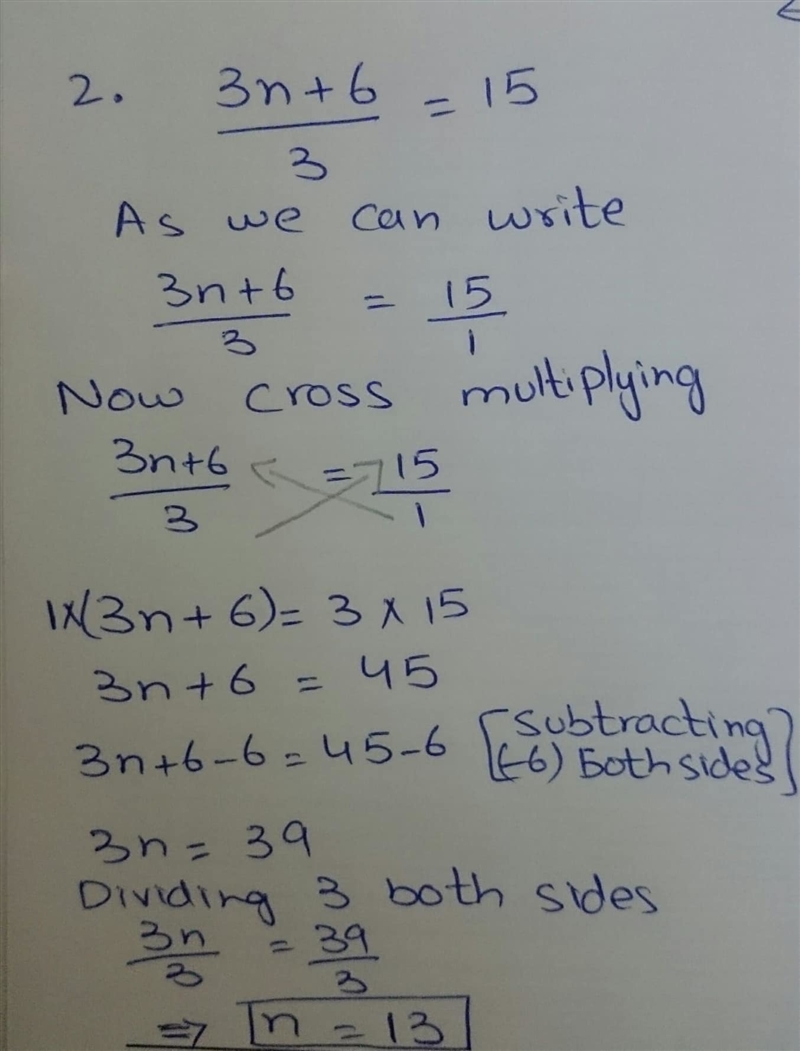 2. (3n+6)/3 = 15
As we can write
(3n+6)/3 = 15/1
Now cross multiplying
(3n+6)/3 = 15/1
1×(3n+6)= 3 × 15
3n+6 = 45
3n+6-6=45-6 [subtracting (-6) both sides]
3n = 39
Dividing 3 both sides
3n/3 = 39/3
⇒ n = 13